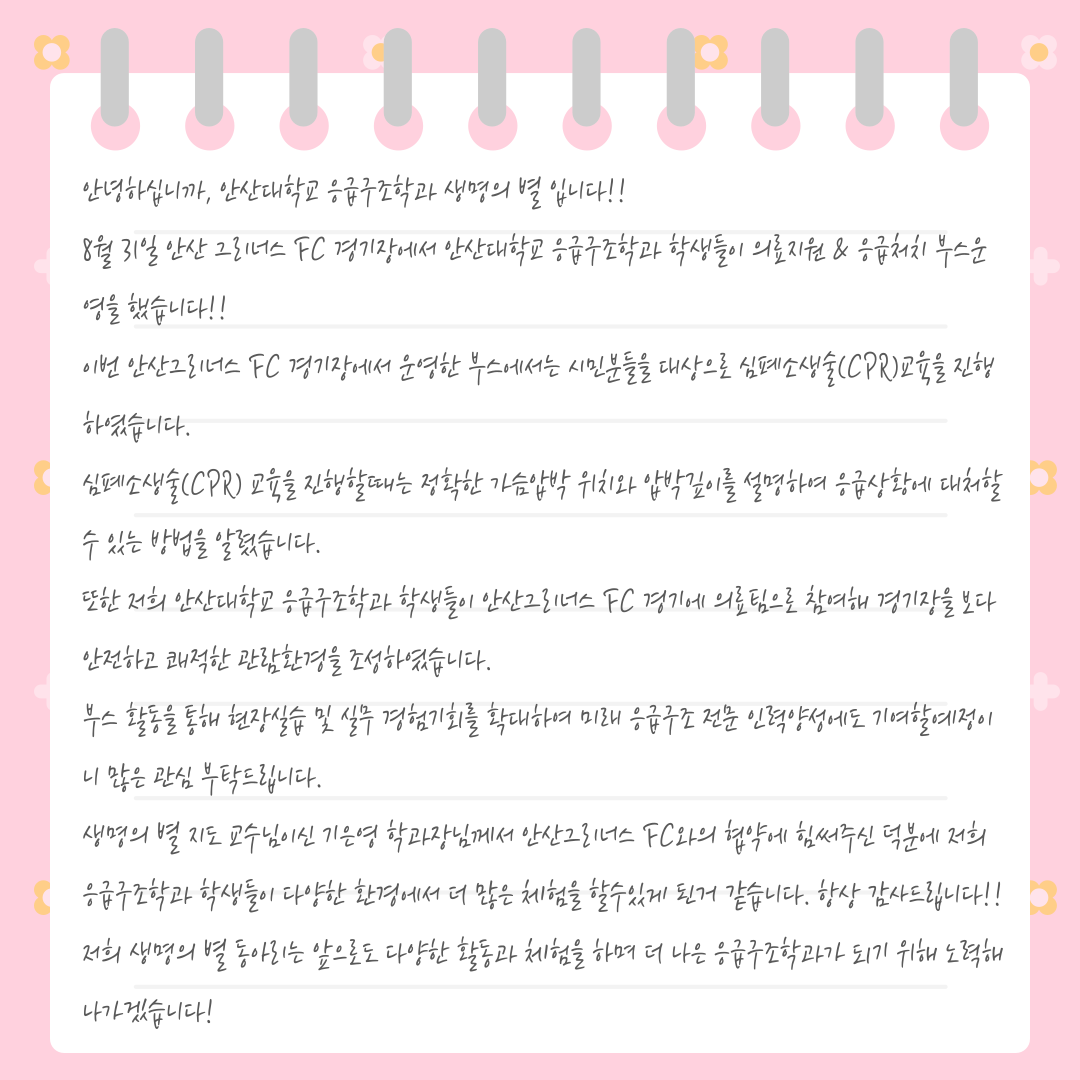 안녕하십니까, 안산대학교 응급구조학과 생명의 별 입니다!!
8월 31일 안산 그리너스 FC 경기장에서 안산대학교 응급구조학과 학생들이 의료지원 & 응급처치 부스운
영을 했습니다!!
이번 안산그리너스 FC 경기장에서 운영한 부스에서는 시민분들을 대상으로 심폐소생술(CPR)교육을 진행
하였습니다.
심폐소생술(CPR) 교육을 진행할때는 정확한 가슴압박 위치와 압박깊이를 설명하여 응급상황에 대처할
수 있는 방법을 알렸습니다.
또한 저희 안산대학교 응급구조학과 학생들이 안산그리너스 FC 경기에 의료팀으로 참여해 경기장을 보다
안전하고 쾌적한 관람환경을 조성하였습니다.
부스 활동을 통해 현장실습 및 실무 경험기회를 확대하여 미래 응급구조 전문 인력양성에도 기여할예정이
니 많은 관심 부탁드립니다.
생명의 별 지도 교수님이신 기은영 학과장님께서 안산그리너스 FC와의 협약에 힘써주신 덕분에 저희
응급구조학과 학생들이 다양한 환경에서 더 많은 체험을 할수있게 된거 같습니다. 항상 감사드립니다!!
저희 생명의 별 동아리는 앞으로도 다양한 활동과 체험을 하며 더 나은 응급구조학과가 되기 위해 노력해
나가겠습니다!